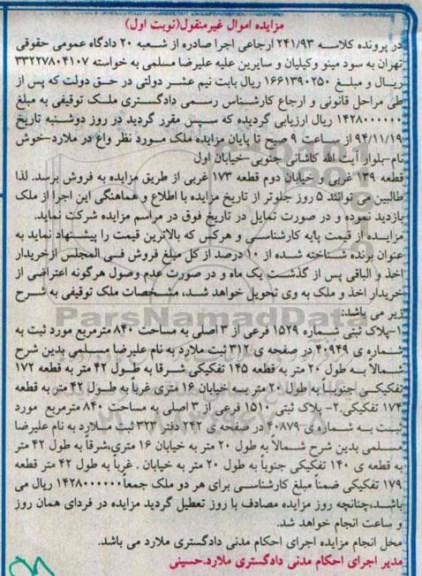 مزایده اموال غیرمنقول(نوبت اول)
در پرونده کلاسه ۲۴۱/۹۳ ارجاعی اجرا صادره از شعبه ۲۰ دادگاه عمومی حقوقی
تهران به سود مینو وکیلیان و سایرین علیه علیرضا مسلمی به خواسته ۳۳۲۲۷۸۰۴۱۰۷
ریال و مبلغ ۱۶۶۱۳۹۰۲۵۰ ریال بابت نیم عشر دولتی در حق دولت که پس از
طی مراحل قانونی و ارجاع کارشناس رسمی دادگستری ملک توقیفی به مبلغ
۱۴۲۸۰۰۰۰۰۰۰ ریال ارزیابی گردیده که سپس مقرر گردید در روز دوشنبه تاریخ
۹۴/۱۱/۱۹ از ساعت ۹ صبح تا پایان مزایده ملک مورد نظر واع در ملارد-خوش
نام-بلوار آیت الله کاشانی جنوبی -خیابان اول
قطعه ۱۳۹ غربی و خیابان دوم قطعه ۱۷۳ غربی از طریق مزایده به فروش برسد. لذا
طالبین می توانند ۵ روز جلوتر از تاریخ مزایده با اطلاع و هماهنگی این اجرا از ملک
بازدید نموده و در صورت تمایل در تاریخ فوق در مراسم مزایده شرکت نماید.
مزایده از قیمت پایه کارشناسی و هرکس که بالاترین قیمت را پیشنهاد نماید به
عنوان برنده شناخته شده از ۱۰ درصد از کل مبلغ فروش فی المجلس ازخریدار
اخذ و الباقی پس از گذشت یک ماه و در صورت عدم وصول هرگونه اعتراضی از
خریدار اخذ و ملک به وی تحویل خواهد شد، مشخصات ملک توقیفی به شرح
زیر می باشد:
۱-پلاک ثبتی شماره ۱۵۲۹ فرعی از ۳ اصلی به مساحت ۸۴۰ مترمربع مورد ثبت به
شماره ی ۴۰۹۴۹ در صفحه ی ۳۱۲ ثبت ملارد به نام علیرضا مسلمی بدین شرح
شمالاً به طول ۲۰ متر به قطعه ۱۴۵ تفکیکی شرقا به طول ۴۲ متر به قطعه ۱۷۲
تفکیکی جنوباً به طول ۲۰ متر به خیابان ۱۶ متری غرباً به طول ۴۲ متر به قطعه
۱۷۴ تفکیکی.۲- پلاک ثبتی ۱۵۱۰ فرعی از ۳ اصلی به مساحت ۸۴۰ مترمربع مورد
ثبت به شماره ی ۴۰۸۷۹ در صفحه ی ۲۴۲ دفتر ۳۲۳ ثبت ملارد به نام علیرضا
مسلمی بدین شرح شمالاً به طول ۲۰ متر به خیابان ۱۶ متری،شرقا به طول ۴۲ متر
به قطعه ی ۱۴۰ تفکیکی جنوباً به طول ۲۰ متر به خیابان . غرباً به طول ۴۲ متر قطعه
۱۷۹ تفکیکی ضمناً مبلغ کارشناسی برای هر دو ملک جمعاً ۱۴۲۸۰۰۰۰۰۰۰ ریال می
باشد،چنانچه روز مزایده مصادف با روز تعطیل گردید مزایده در فردای همان روز
و ساعت انجام خواهد شد.
محل انجام مزایده اجرای احکام مدنی دادگستری ملارد می باشد.
مدیر اجرای احکام مدنی دادگستری ملارد.حسینی
ParsNamadData